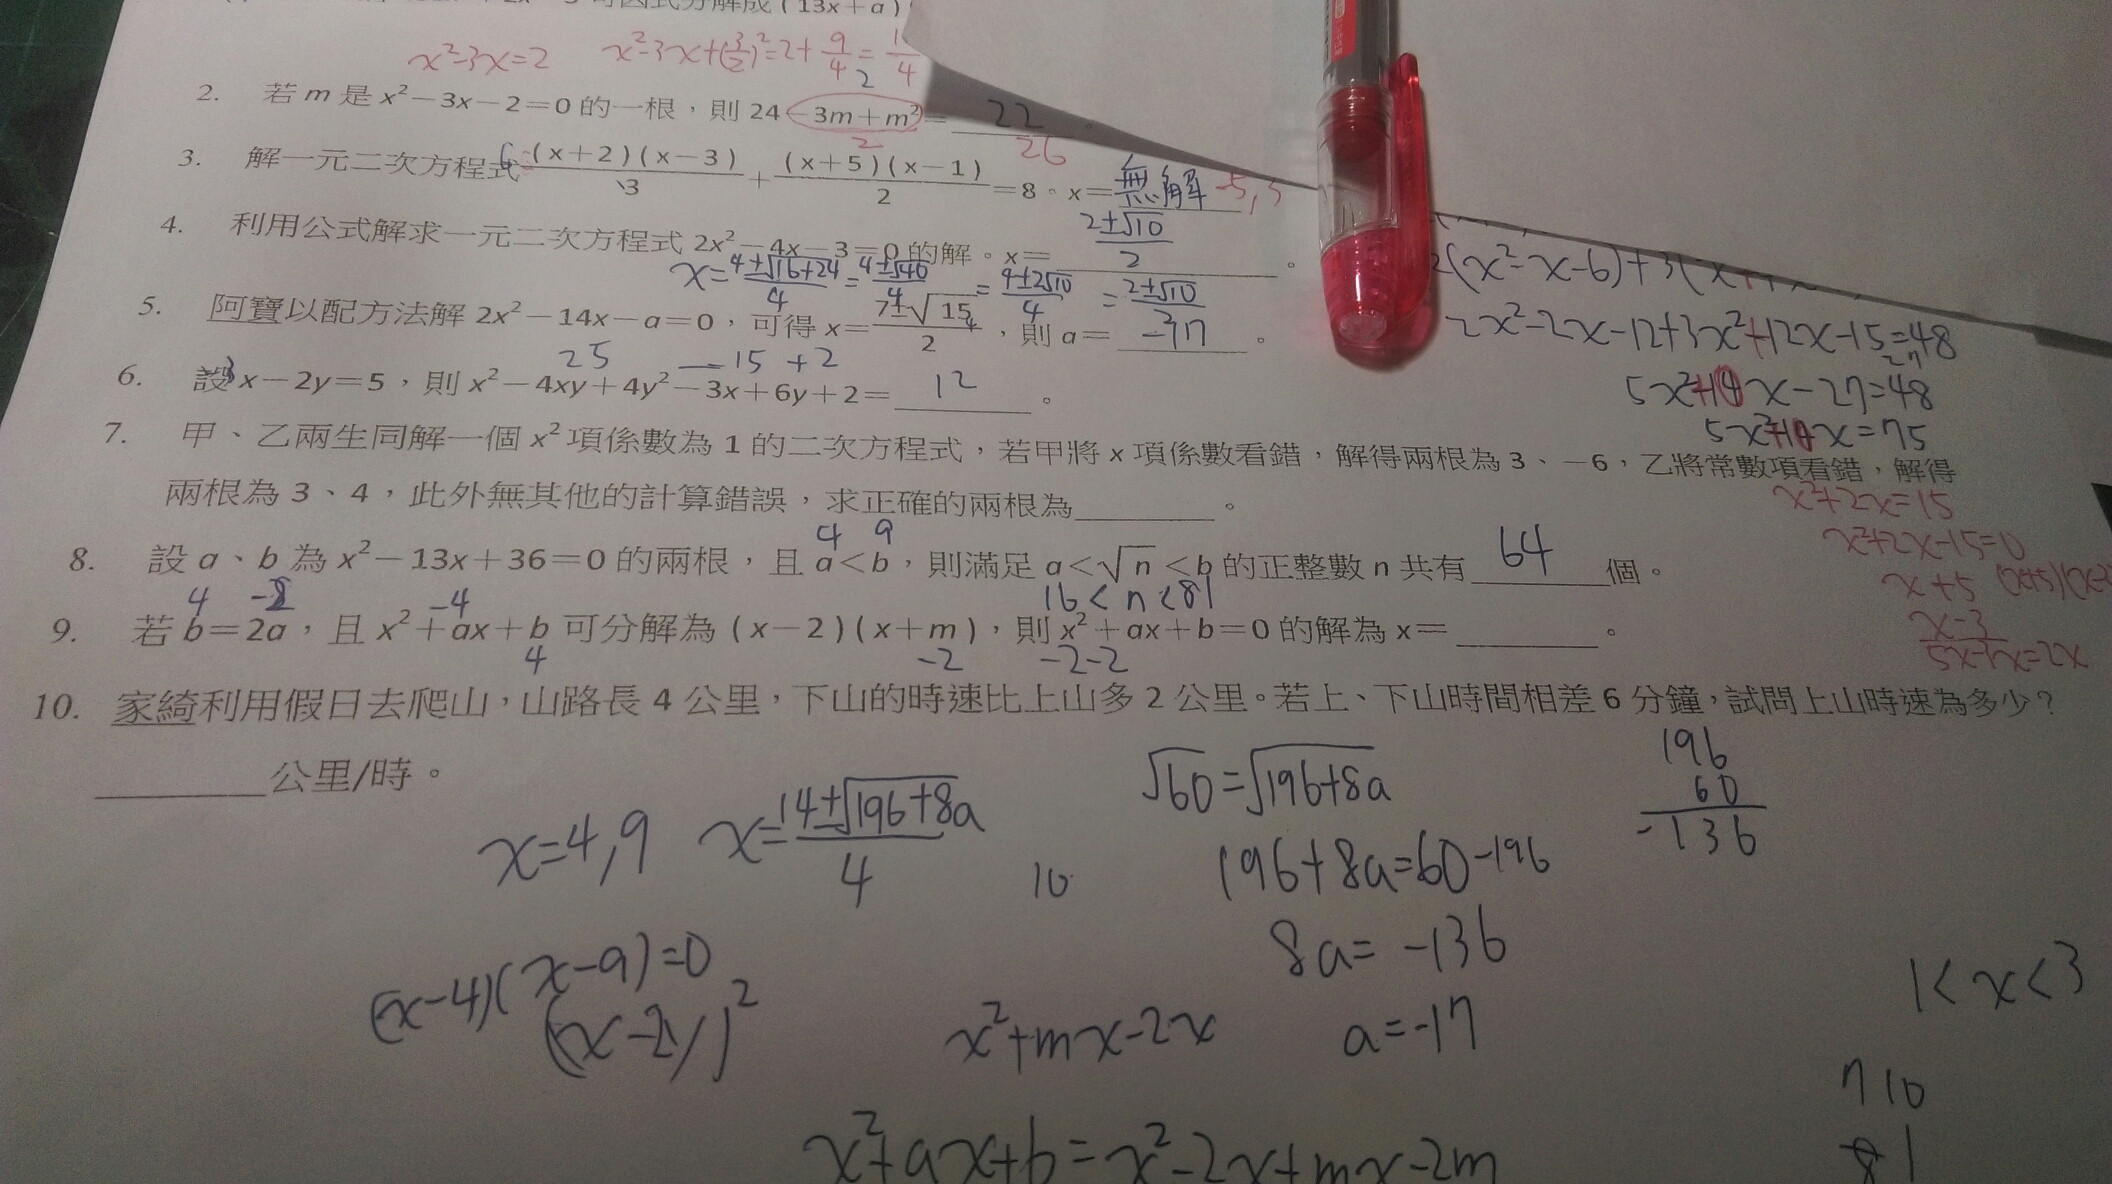 可因式分解成(13x+a)
x²-3x=2 x²-3x+(3/2)²=2+9/4=
2. 若 m 是 x²-3x-2=0 的一根，則 24-3m+m²= 22
2 26
3. 解一元二次方程式 (x+2)(x-3)/3 + (x+5)(x-1)/2 =8。x= 無解 -5,3
4. 利用公式解求一元二次方程式 2x²-4x-3=0 的解。x= 2±√10/2 。
x= 4±√16+24/4 = 4±√40/4 = 4±2√10/4 = 2±√10/2
5. 阿寶以配方法解 2x²-14x-a=0，可得 x= 7±√15/2 ，則 a= -17 。
25 -15 +2
6. 設 x-2y=5，則 x²-4xy+4y²-3x+6y+2= 12 。
7. 甲、乙兩生同解一個 x² 項係數為 1 的二次方程式，若甲將 x 項係數看錯，解得兩根為 3、-6，乙將常數項看錯，解得
兩根為 3、4，此外無其他的計算錯誤，求正確的兩根為 。
4 9
8. 設 a、b 為 x²-13x+36=0 的兩根，且 a<b，則滿足 a<√n<b 的正整數 n 共有 64 個。
16<n<81
4 -4
9. 若 b=2a，且 x²+ax+b 可分解為 (x-2)(x+m)，則 x²+ax+b=0 的解為 x= 。
4 -2 -2-2
10. 家綺利用假日去爬山，山路長 4 公里，下山的時速比上山多 2 公里。若上、下山時間相差 6 分鐘，試問上山時速為多少？
公里/時。
2(x²-x-6)+3(x
2x²-2x-12+3x²+12x-15=48
5x²+10x-27=48
5x²+10x=75
x²+2x=15
x²+2x-15=0
x+5
x-3
5x-3x=2x
x=4,9
x= 14±√196+8a/4
10
√60=√196+8a
196+8a=60-196
8a=-136
a=-17
196
60
-136
(x-4)(x-9)=0
(x-2y)²
x²+mx-2x
1<x<3
x²+ax+b=x²-2x+mx-2m
710
81